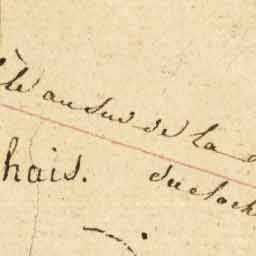 au Sud de la
hais.
du cloch